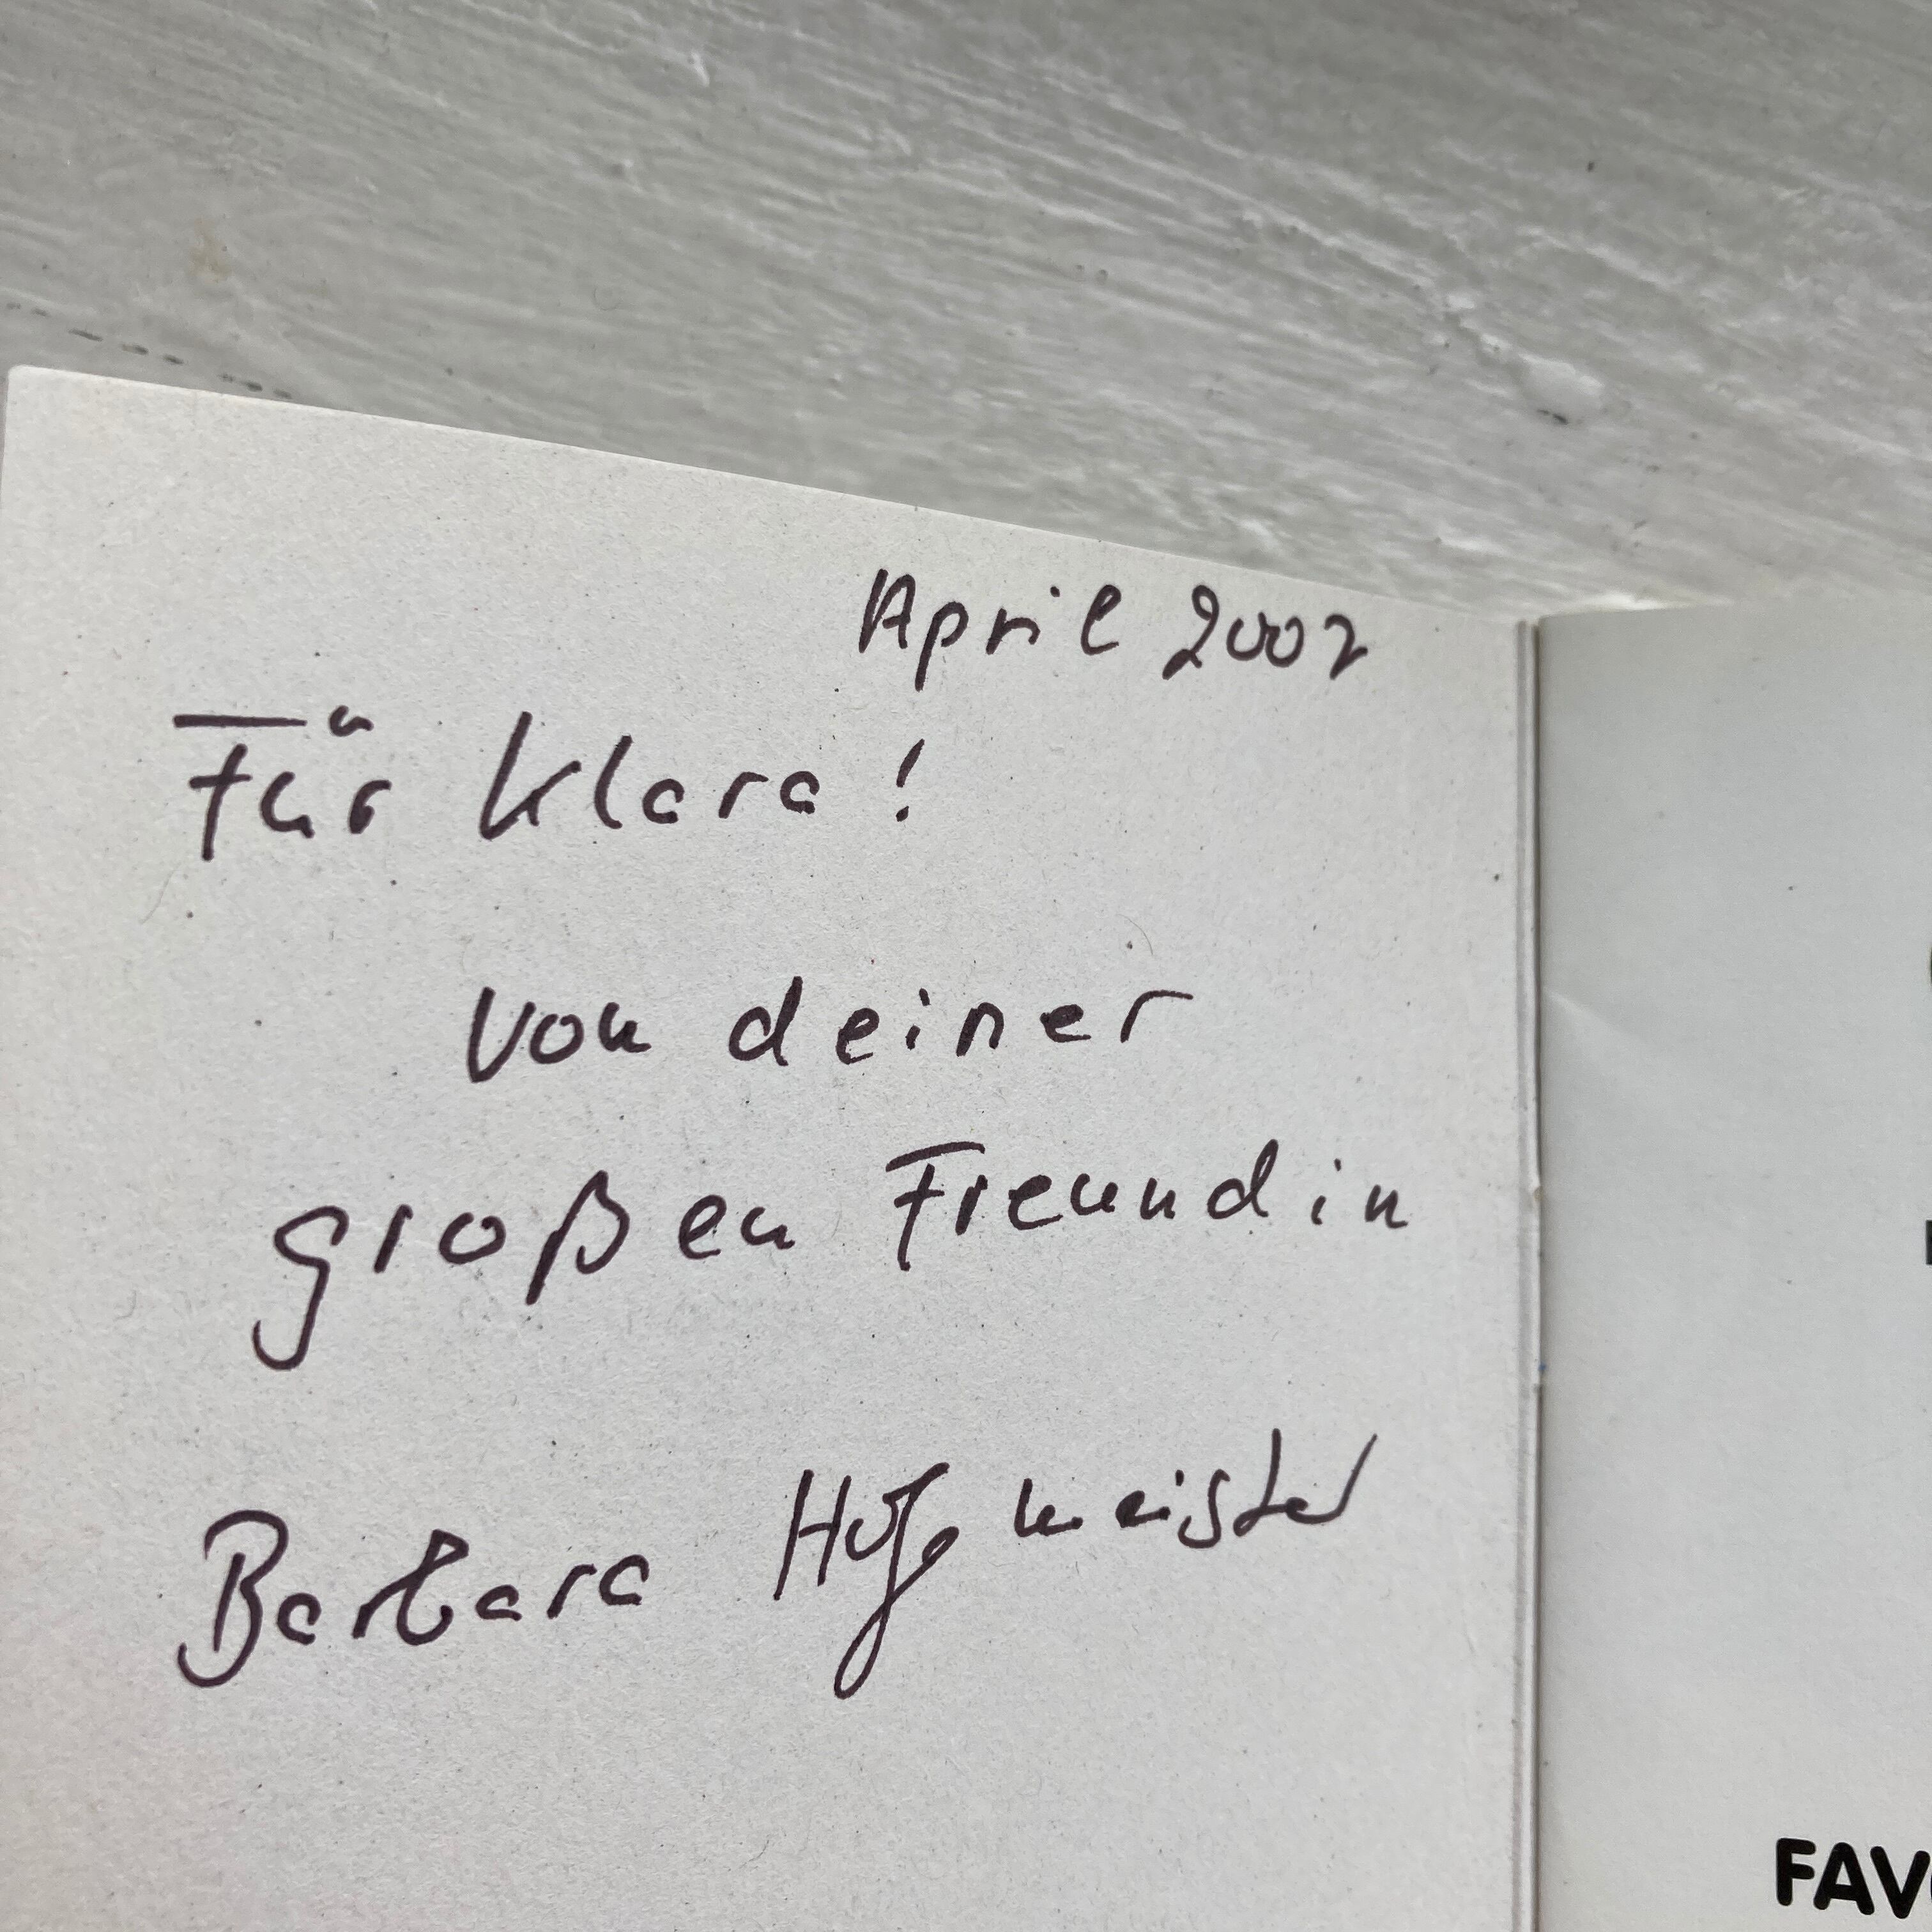 April 2002
Für Klara!
von deiner
großen Freundin
Barbara Hofmeister
FAV